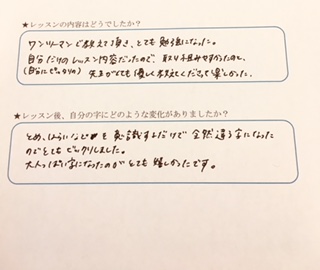 ★レッスンの内容はどうでしたか？
ワンツーマンで教えて頂き、とても勉強になった。
自分だけのレッスン内容だったので、取り組みやすかったのと、
(自分にピッタリの) 先生がとても優しく教えてくださって楽しかった。
★レッスン後、自分の字にどのような変化がありましたか？
とめ、はらいなどを意識するだけで全然違う字になった
のでとてもビックリしました。
大人っぽい字になったのがとても嬉しかったです。